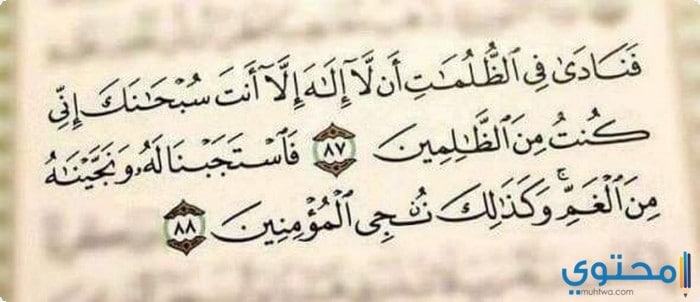 فَنَادَىٰ فِي ٱلظُّلُمَٰتِ أَن لَّآ إِلَٰهَ إِلَّآ أَنتَ سُبْحَٰنَكَ إِنِّي
كُنتُ مِنَ ٱلظَّٰلِمِينَ ٨٧ فَٱسْتَجَبْنَا لَهُۥ وَنَجَّيْنَٰهُ
مِنَ ٱلْغَمِّ ۚ وَكَذَٰلِكَ نُۨجِي ٱلْمُؤْمِنِينَ ٨٨
محتوى
www.muhtwa.com